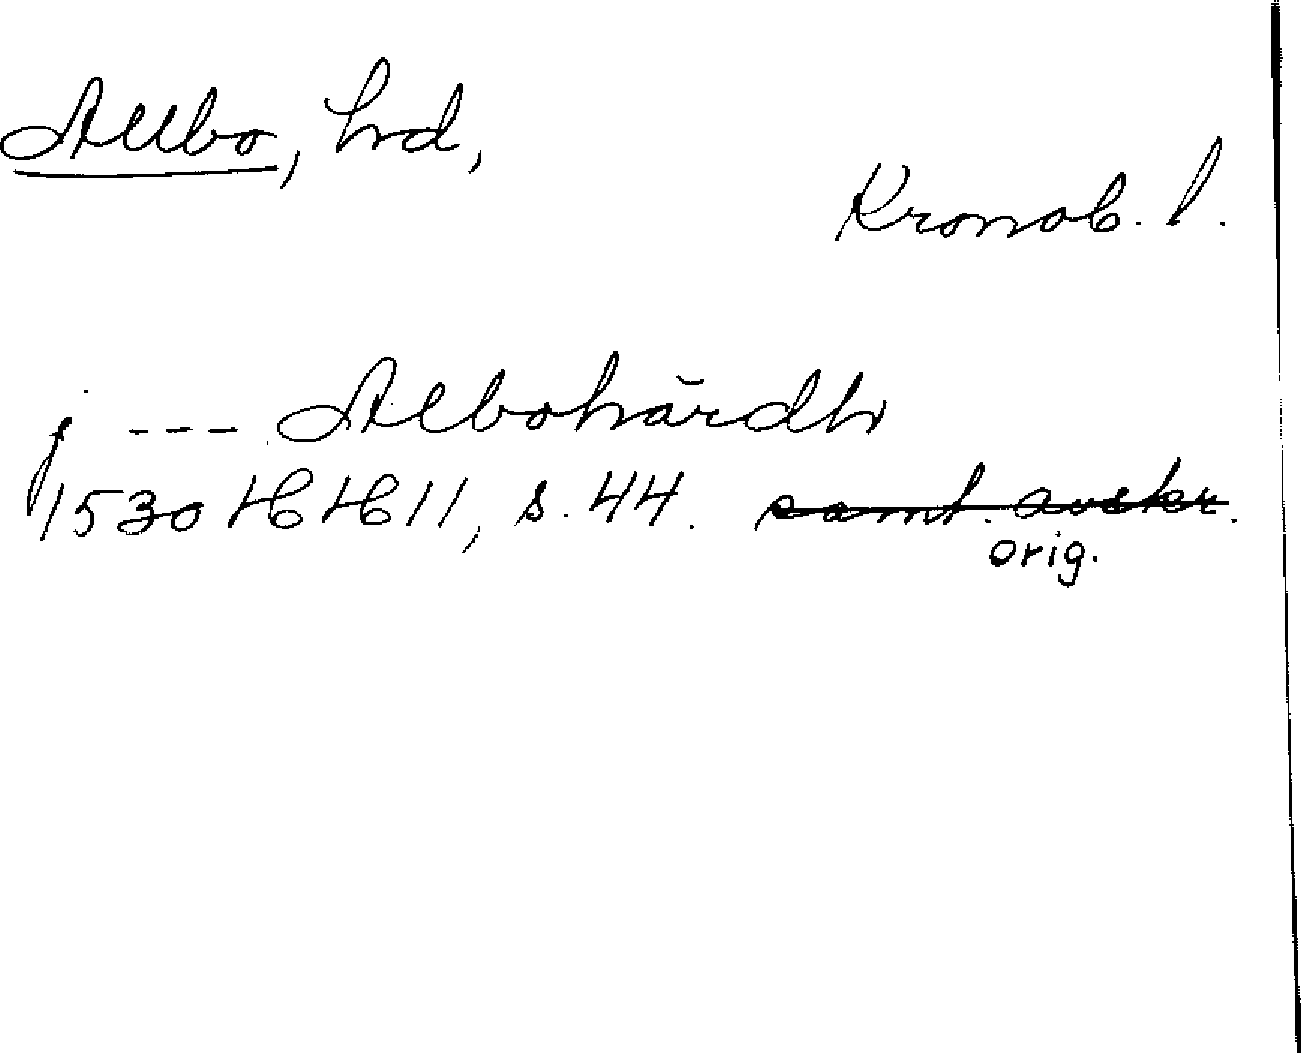 Allbo, hrd,
Kronob. l.
j --- Albohärdh
1530 HH 11, s. 44. samt. avskr.
orig.